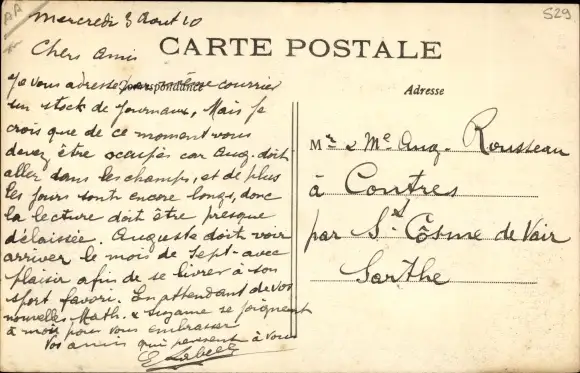 AA
529
Mercredi 3 Aout 10
Chers Amis
CARTE POSTALE
Correspondance
Adresse
Je vous adresse par même courrier
un stock de journaux, Mais je
crois que de ce moment vous
devez être occupés car Aug. doit
aller dans les champs, et de plus
les jours sont encore longs, donc
la lecture doit être presque
délaissée. Auguste doit voir
arriver le mois de Sept. avec
plaisir afin de se livrer à son
sport favori. En attendant de vos
nouvelles Math. & Suzanne se joignent
à moi pour vous embrasser
Vos amis qui pensent à vous
E. Labelle
Mr & Me Aug. Rousseau
à Contres
par St Côsme de Vair
Sarthe